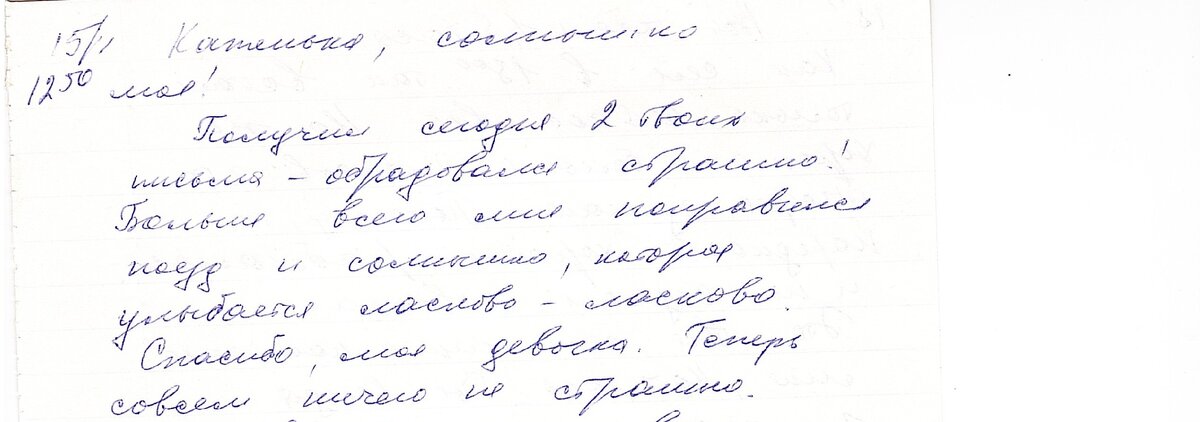 15/VI Катенька, солнышко
12⁵⁰ моё!
Получил сегодня 2 твоих
письма – обрадовался страшно!
Больше всего мне понравился
поезд и солнышко, которое
улыбается ласково – ласково.
Спасибо, моя девочка. Теперь
совсем ничего не страшно.